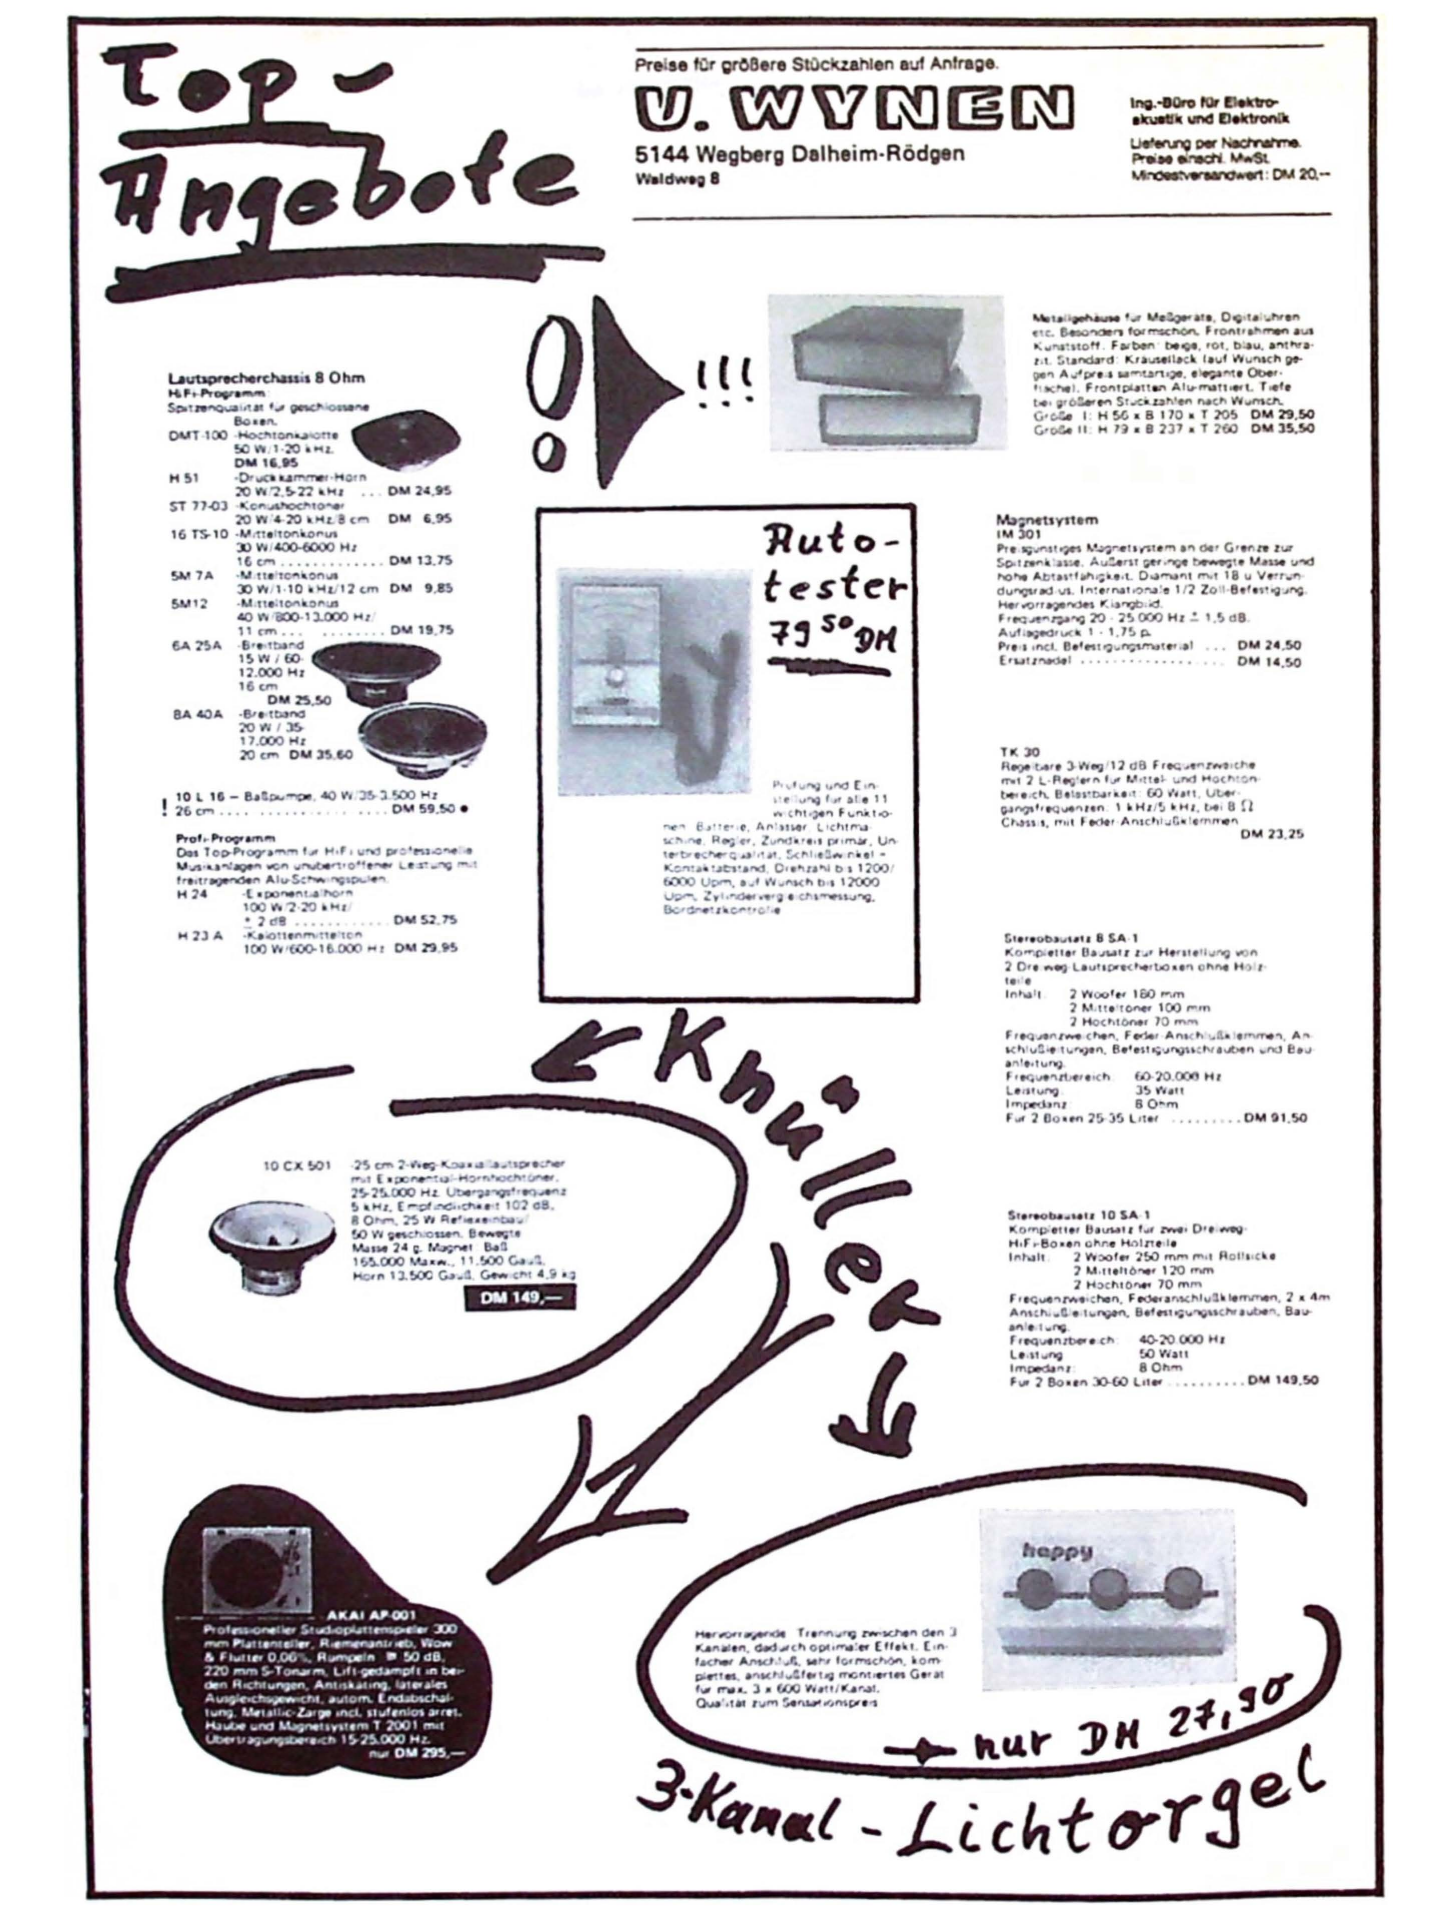 Top-
Angebote
Preise für größere Stückzahlen auf Anfrage.
U. WYNEN
5144 Wegberg Dalheim-Rödgen
Waldweg 8
Ing.-Büro für Elektro-
akustik und Elektronik
Lieferung per Nachnahme.
Preise einschl. MwSt.
Mindestversandwert: DM 20,--
!
!!!
Metallgehäuse für Meßgeräte, Digitaluhren
etc. Besonders formschön. Frontrahmen aus
Kunststoff. Farben: beige, rot, blau, anthra-
zit. Standard: Kräusellack (auf Wunsch ge-
gen Aufpreis samtartige, elegante Ober-
fläche). Frontplatten Alu-mattiert. Tiefe
bei größeren Stückzahlen nach Wunsch.
Größe I: H 56 x B 170 x T 205 DM 29,50
Größe II: H 79 x B 237 x T 260 DM 35,50
Lautsprecherchassis 8 Ohm
HiFi-Programm:
Spitzenqualität für geschlossene
Boxen.
DMT-100 -Hochtonkalotte
50 W/1-20 kHz.
DM 16,95
H 51 -Druckkammer-Horn
20 W/2,5-22 kHz ... DM 24,95
ST 77-03 -Konushochtöner
20 W/4-20 kHz/8 cm DM 6,95
16 TS-10 -Mitteltonkonus
30 W/400-6000 Hz
16 cm .............. DM 13,75
5M 7A -Mitteltonkonus
30 W/1-10 kHz/12 cm DM 9,85
5M12 -Mitteltonkonus
40 W/800-13.000 Hz/
11 cm ... ......... DM 19,75
6A 25A -Breitband
15 W / 60-
12.000 Hz
16 cm
DM 25,50
8A 40A -Breitband
20 W / 35-
17.000 Hz
20 cm DM 35,60
! 10 L 16 – Baßpumpe, 40 W/35-3.500 Hz
26 cm .... .................. DM 59,50 ●
Profi-Programm
Das Top-Programm für HiFi und professionelle
Musikanlagen von unübertroffener Leistung mit
freitragenden Alu-Schwingspulen.
H 24 -Exponentialhorn
100 W/2-20 kHz/
± 2 dB ............ DM 52,75
H 23 A -Kalottenmittelton
100 W/600-16.000 Hz DM 29,95
Auto-
tester
79 50 DM
Prüfung und Ein-
stellung für alle 11
wichtigen Funktio-
nen: Batterie, Anlasser, Lichtma-
schine, Regler, Zündkreis primär, Un-
terbrecherqualität, Schließwinkel –
Kontaktabstand, Drehzahl bis 1200/
6000 Upm, auf Wunsch bis 12000
Upm, Zylindervergleichsmessung,
Bordnetzkontrolle
Magnetsystem
IM 301
Preisgünstiges Magnetsystem an der Grenze zur
Spitzenklasse. Äußerst geringe bewegte Masse und
hohe Abtastfähigkeit. Diamant mit 18 u Verrun-
dungsradius. Internationale 1/2 Zoll-Befestigung.
Hervorragendes Klangbild.
Frequenzgang 20 - 25.000 Hz ± 1,5 dB.
Auflagedruck 1 - 1,75 p.
Preis incl. Befestigungsmaterial ... DM 24,50
Ersatznadel .................. DM 14,50
TK 30
Regelbare 3-Weg/12 dB Frequenzweiche
mit 2 L-Reglern für Mittel- und Hochton-
bereich. Belastbarkeit: 60 Watt, Über-
gangsfrequenzen: 1 kHz/5 kHz, bei 8 Ω
Chassis, mit Feder-Anschlußklemmen
DM 23,25
Stereobausatz 8 SA-1
Kompletter Bausatz zur Herstellung von
2 Dreiweg-Lautsprecherboxen ohne Holz-
teile
Inhalt: 2 Woofer 180 mm
2 Mitteltöner 100 mm
2 Hochtöner 70 mm
Frequenzweichen, Feder-Anschlußklemmen, An-
schlußleitungen, Befestigungsschrauben und Bau-
anleitung.
Frequenzbereich: 60-20.000 Hz
Leistung: 35 Watt
Impedanz: 8 Ohm
Für 2 Boxen 25-35 Liter ......... DM 91,50
Stereobausatz 10 SA-1
Kompletter Bausatz für zwei Dreiweg-
HiFi-Boxen ohne Holzteile
Inhalt: 2 Woofer 250 mm mit Rollsicke
2 Mitteltöner 120 mm
2 Hochtöner 70 mm
Frequenzweichen, Federanschlußklemmen, 2 x 4m
Anschlußleitungen, Befestigungsschrauben, Bau-
anleitung.
Frequenzbereich: 40-20.000 Hz
Leistung 50 Watt
Impedanz: 8 Ohm
Für 2 Boxen 30-60 Liter .......... DM 149,50
Knüller
10 CX 501 -25 cm 2-Weg-Koaxiallautsprecher
mit Exponential-Hornhochtöner,
25-25.000 Hz. Übergangsfrequenz
5 kHz, Empfindlichkeit 102 dB,
8 Ohm, 25 W Reflexeinbau/
50 W geschlossen. Bewegte
Masse 24 g. Magnet: Baß
165.000 Maxw., 11.500 Gauß,
Horn 13.500 Gauß. Gewicht 4,9 kg
DM 149,—
AKAI AP-001
Professioneller Studioplattenspieler 300
mm Plattenteller, Riemenantrieb, Wow
& Flutter 0,06%, Rumpeln 50 dB,
220 mm S-Tonarm, Lift-gedämpft in bei-
den Richtungen, Antiskating, laterales
Ausgleichsgewicht, autom. Endabschal-
tung, Metallic-Zarge incl. stufenlos arret.
Haube und Magnetsystem T 2001 mit
Übertragungsbereich 15-25.000 Hz.
nur DM 295,—
happy
Hervorragende Trennung zwischen den 3
Kanälen, dadurch optimaler Effekt. Ein-
facher Anschluß, sehr formschön, kom-
plettes, anschlußfertig montiertes Gerät
für max. 3 x 600 Watt/Kanal.
Qualität zum Sensationspreis
nur DM 27,90
3-Kanal-Lichtorgel